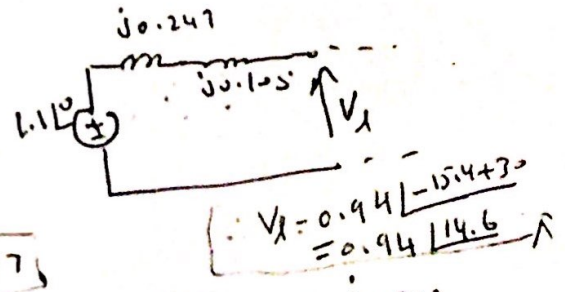 j0.247
j0.105
1.1∠0
±
V_l
∴ V_l = 0.94 ∠-15.4+30
= 0.94 ∠14.6
7